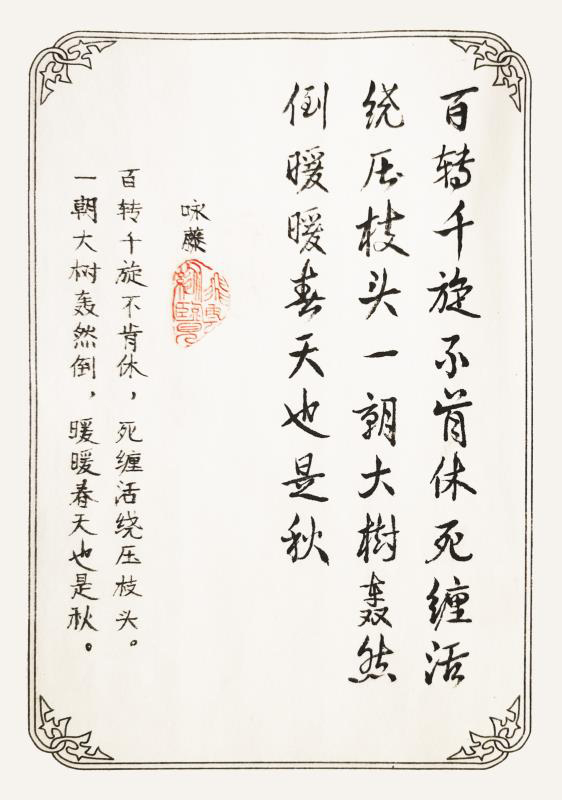 百转千旋不肯休死缠活
绕压枝头一朝大樹轰然
倒暖暖春天也是秋
咏藤
百转千旋不肯休，死缠活绕压枝头。
一朝大树轰然倒，暖暖春天也是秋。